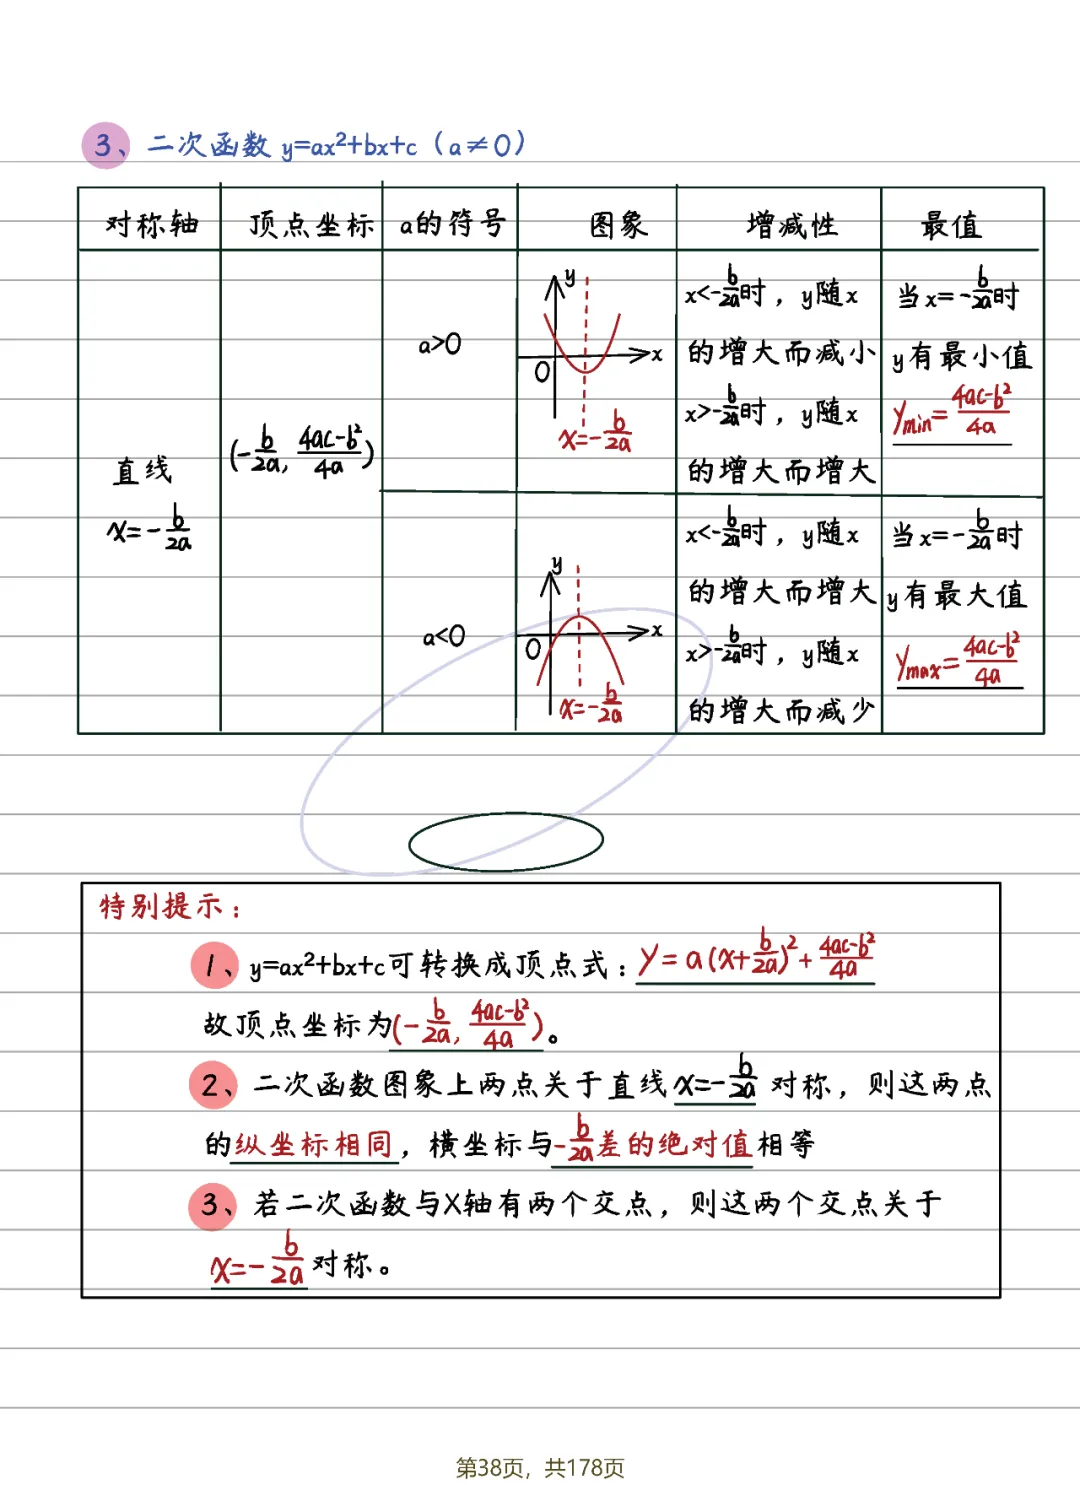 3、二次函数 y=ax²+bx+c（a≠0）
对称轴 顶点坐标 a的符号 图象 增减性 最值
直线
x=-b/2a
(-b/2a, 4ac-b²/4a)
a>0
y
x
0
x=-b/2a
x<-b/2a时，y随x
的增大而减小
x>-b/2a时，y随x
的增大而增大
当x=-b/2a时
y有最小值
ymin=4ac-b²/4a
a<0
y
x
0
x=-b/2a
x<-b/2a时，y随x
的增大而增大
x>-b/2a时，y随x
的增大而减少
当x=-b/2a时
y有最大值
ymax=4ac-b²/4a
特别提示：
1、y=ax²+bx+c可转换成顶点式：y=a(x+b/2a)²+4ac-b²/4a
故顶点坐标为(-b/2a, 4ac-b²/4a)。
2、二次函数图象上两点关于直线x=-b/2a对称，则这两点
的纵坐标相同，横坐标与-b/2a差的绝对值相等
3、若二次函数与X轴有两个交点，则这两个交点关于
x=-b/2a对称。
第38页，共178页